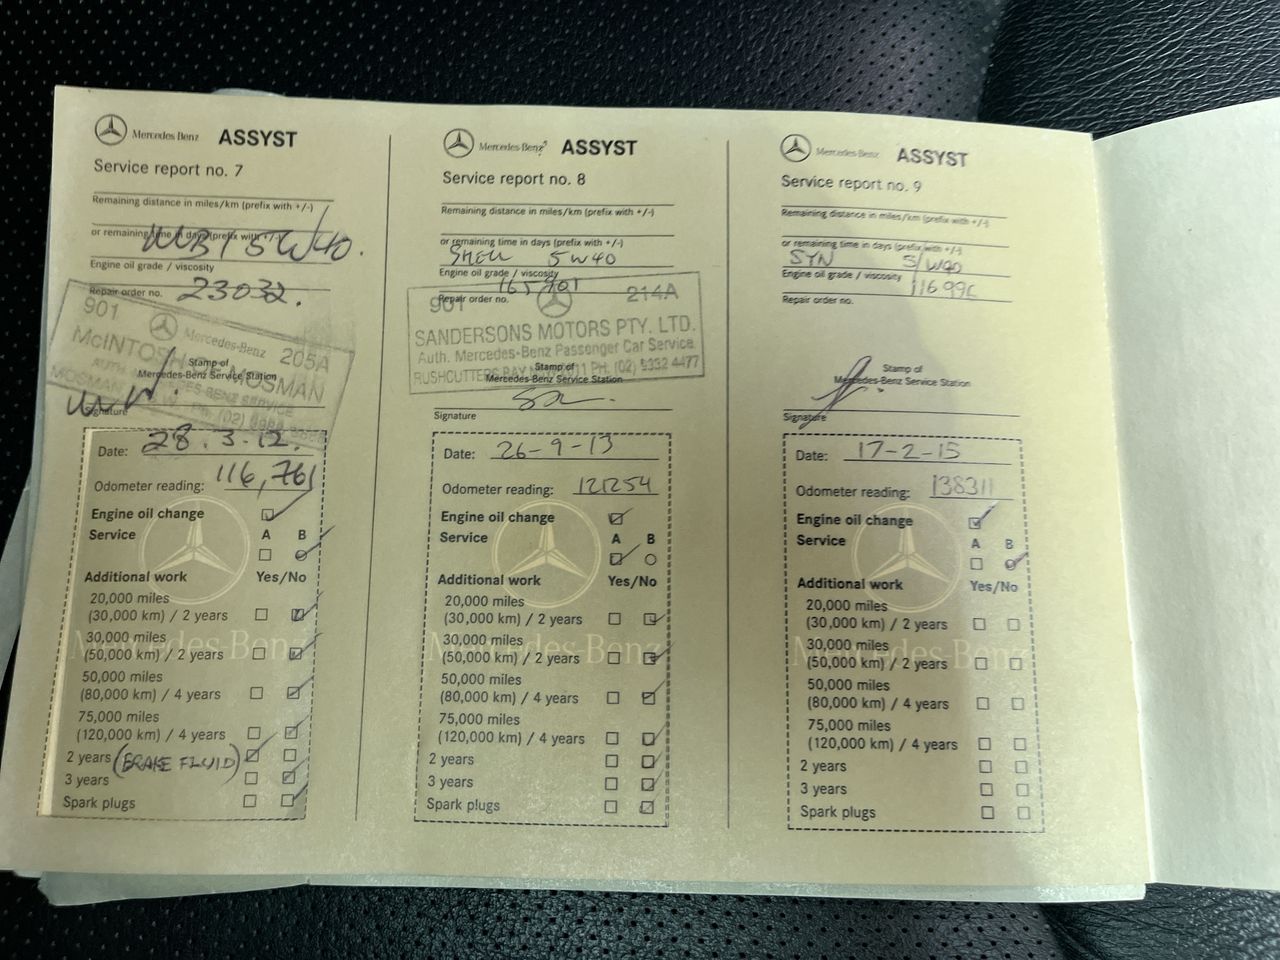 Mercedes-Benz ASSYST
Service report no. 7
Remaining distance in miles/km (prefix with +/-)
or remaining time in days (prefix with +/-)
5W40.
Engine oil grade / viscosity
Repair order no. 23032.
901 Mercedes-Benz 205A
McINTOSH MOSMAN
Stamp of
Mercedes-Benz Service Station
Signature
Date: 28.3.12.
Odometer reading: 116,761
Engine oil change
Service A B
Additional work Yes/No
20,000 miles
(30,000 km) / 2 years
30,000 miles
(50,000 km) / 2 years
50,000 miles
(80,000 km) / 4 years
75,000 miles
(120,000 km) / 4 years
2 years (BRAKE FLUID)
3 years
Spark plugs
Mercedes-Benz
Mercedes-Benz ASSYST
Service report no. 8
Remaining distance in miles/km (prefix with +/-)
or remaining time in days (prefix with +/-)
SHELL 5W40
Engine oil grade / viscosity
Repair order no.
901 214A
SANDERSONS MOTORS PTY. LTD.
Auth. Mercedes-Benz Passenger Car Service
RUSHCUTTERS BAY PH: (02) 9332 4477
Stamp of
Mercedes-Benz Service Station
Signature
Date: 26-9-13
Odometer reading: 121254
Engine oil change
Service A B
Additional work Yes/No
20,000 miles
(30,000 km) / 2 years
30,000 miles
(50,000 km) / 2 years
50,000 miles
(80,000 km) / 4 years
75,000 miles
(120,000 km) / 4 years
2 years
3 years
Spark plugs
Mercedes-Benz
Mercedes-Benz ASSYST
Service report no. 9
Remaining distance in miles/km (prefix with +/-)
or remaining time in days (prefix with +/-)
SYN 5/W40
Engine oil grade / viscosity
Repair order no.
Stamp of
Mercedes-Benz Service Station
Signature
Date: 17-2-15
Odometer reading: 138311
Engine oil change
Service A B
Additional work Yes/No
20,000 miles
(30,000 km) / 2 years
30,000 miles
(50,000 km) / 2 years
50,000 miles
(80,000 km) / 4 years
75,000 miles
(120,000 km) / 4 years
2 years
3 years
Spark plugs
Mercedes-Benz